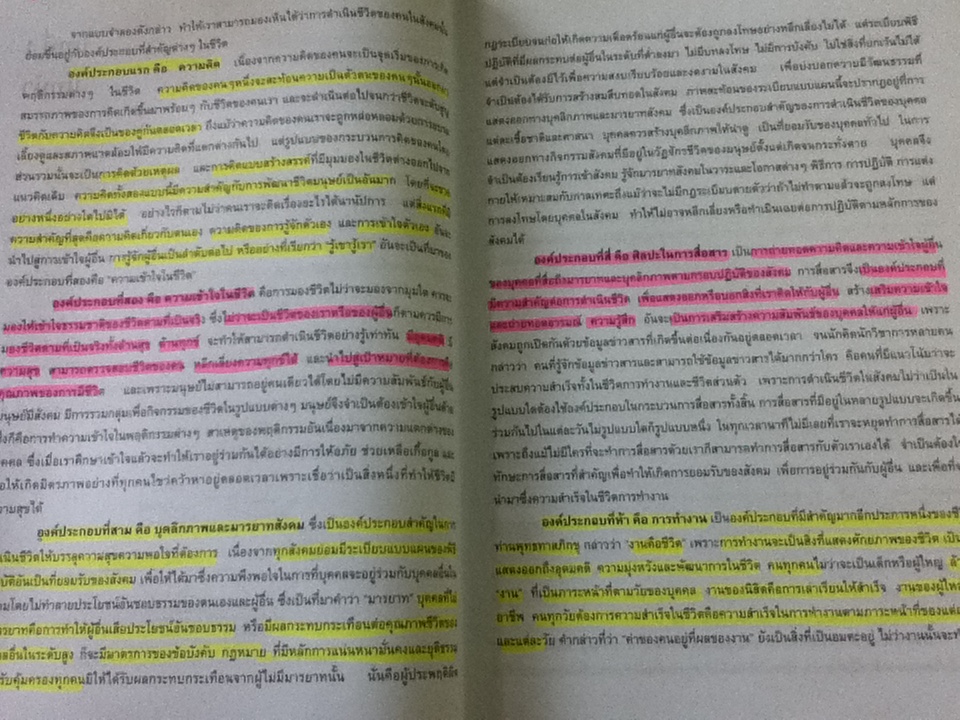 จากแบบจำลองดังกล่าว ทำให้เราสามารถมองเห็นได้ว่าการดำเนินชีวิตของคนในสังคมนั้น
ย่อมขึ้นอยู่กับองค์ประกอบที่สำคัญต่างๆ ในชีวิต
องค์ประกอบแรก คือ ความคิด เนื่องจากความคิดของคนจะเป็นจุดเริ่มของการเกิด
พฤติกรรมต่างๆ ในชีวิต ความคิดของคนๆหนึ่งจะสะท้อนความเป็นตัวตนของคนๆนั้นออกมา
สมรรถภาพของการคิดเกิดขึ้นมาพร้อมๆ กับชีวิตของคนเรา และจะดำเนินต่อไปจนกว่าชีวิตจะดับสูญ
ชีวิตกับความคิดจึงเป็นของคู่กันตลอดเวลา ถึงแม้ว่าความคิดของคนเราจะถูกหล่อหลอมด้วยการอบรม
เลี้ยงดูและสภาพแวดล้อมให้มีความคิดที่แตกต่างกันไป แต่รูปแบบของกระบวนการคิดของคนโดย
ส่วนรวมนั้นจะเป็นการคิดด้วยเหตุผล และการคิดแบบสร้างสรรค์ที่มีมุมมองในชีวิตต่างออกไปจาก
แนวคิดเดิม ความคิดทั้งสองแบบนี้มีความสำคัญกับการพัฒนาชีวิตมนุษย์เป็นอันมาก โดยที่จะขาด
อย่างหนึ่งอย่างใดไปมิได้ อย่างไรก็ตามไม่ว่าคนเราจะคิดเรื่องอะไรได้นานัปการ แต่สิ่งแรกที่มี
ความสำคัญที่สุดคือความคิดเกี่ยวกับตนเอง ความคิดของการรู้จักตัวเอง และการเข้าใจตัวเอง อันจะ
นำไปสู่การเข้าใจผู้อื่น การรู้จักผู้อื่นเป็นลำดับต่อไป หรืออย่างที่เรียกว่า "รู้เขารู้เรา" อันจะเป็นที่มาของ
องค์ประกอบที่สองคือ "ความเข้าใจในชีวิต"
องค์ประกอบที่สอง คือ ความเข้าใจในชีวิต คือการมองชีวิตไม่ว่าจะมองจากมุมใด ควรจะ
มองให้เข้าใจธรรมชาติของชีวิตตามที่เป็นจริง ซึ่งไม่ว่าจะเป็นชีวิตของเราหรือของผู้อื่นก็ตามควรมีการ
มองชีวิตตามที่เป็นจริงทั้งด้านสุข ด้านทุกข์ จะทำให้สามารถดำเนินชีวิตอย่างรู้เท่าทัน มีอุดมคติ มี
ความสุข สามารถตรวจสอบชีวิตของตน หลีกเลี่ยงความทุกข์ได้ และนำไปสู่เป้าหมายที่ต้องการคือ
คุณภาพของการมีชีวิต และเพราะมนุษย์ไม่สามารถอยู่คนเดียวได้โดยไม่มีความสัมพันธ์กับผู้อื่น
มนุษย์มีสังคม มีการรวมกลุ่มเพื่อกิจกรรมของชีวิตในรูปแบบต่างๆ มนุษย์จึงจำเป็นต้องเข้าใจผู้อื่นด้วย
ซึ่งก็คือการทำความเข้าใจในพฤติกรรมต่างๆ สาเหตุของพฤติกรรมอันเนื่องมาจากความแตกต่างของ
บุคคล ซึ่งเมื่อเราศึกษาเข้าใจแล้วจะทำให้เราอยู่ร่วมกันได้อย่างมีการให้อภัย ช่วยเหลือเกื้อกูล และ
ก่อให้เกิดมิตรภาพอย่างที่ทุกคนใขว่คว้าหาอยู่ตลอดเวลาเพราะเชื่อว่าเป็นสิ่งหนึ่งที่ทำให้ชีวิตมี
ความสุขได้
องค์ประกอบที่สาม คือ บุคลิกภาพและมารยาทสังคม ซึ่งเป็นองค์ประกอบสำคัญในการ
ดำเนินชีวิตให้บรรลุความสุขความพอใจที่ต้องการ เนื่องจากทุกสังคมย่อมมีระเบียบแบบแผนของพิธี
ปฏิบัติอันเป็นที่ยอมรับของสังคม เพื่อให้ได้มาซึ่งความพึงพอใจในการที่บุคคลจะอยู่ร่วมกับบุคคลอื่นใน
สังคมโดยไม่ทำลายประโยชน์อันชอบธรรมของตนเองและผู้อื่น ซึ่งเป็นที่มาคำว่า "มารยาท" บุคคลที่ไม่
มีมารยาทคือการทำให้ผู้อื่นเสียประโยชน์อันชอบธรรม หรือมีผลกระทบกระเทือนต่อคุณภาพชีวิตของ
บุคคลอื่นในระดับสูง ก็จะมีมาตรการของข้อบังคับ กฎหมาย ที่มีหลักการแน่นหนามั่นคงและยุติธรรม
สำหรับคุ้มครองทุกคนมิให้ได้รับผลกระทบกระเทือนจากผู้ไม่มีมารยาทนั้น นั่นคือผู้ประพฤติผิด
กฎระเบียบจนก่อให้เกิดความเดือดร้อนแก่ผู้อื่นจะต้องถูกลงโทษอย่างหลีกเลี่ยงไม่ได้ แต่ระเบียบพิธี
ปฏิบัติที่มีผลกระทบต่อผู้อื่นในระดับที่ต่ำลงมา ไม่มีบทลงโทษ ไม่มีการบังคับ ไม่ใช่สิ่งที่ยกเว้นไม่ได้
แต่จำเป็นต้องมีไว้เพื่อความสงบเรียบร้อยและงดงามในสังคม เพื่อบ่งบอกความมีวัฒนธรรมที่
จำเป็นต้องได้รับการสร้างสมสืบทอดในสังคม ภาพสะท้อนของระเบียบแบบแผนนี้จะปรากฏอยู่ที่การ
แสดงออกทางบุคลิกภาพและมารยาทสังคม ซึ่งเป็นองค์ประกอบสำคัญของการดำเนินชีวิตของบุคคล
แต่ละเชื้อชาติและศาสนา บุคคลควรสร้างบุคลิกภาพให้น่าดู เป็นที่ยอมรับของบุคคลทั่วไป ในการ
แสดงออกทางกิจกรรมสังคมที่มีอยู่ในวัฏจักรชีวิตของมนุษย์ตั้งแต่เกิดจนกระทั่งตาย บุคคลจึง
จำเป็นต้องเรียนรู้การเข้าสังคม รู้จักมารยาทสังคมในวาระและโอกาสต่างๆ พิธีการ การปฏิบัติ การแต่ง
กายให้เหมาะสมกับกาลเทศะถึงแม้ว่าจะไม่มีกฎระเบียบตายตัวว่าถ้าไม่ทำตามแล้วจะถูกลงโทษ แต่
การลงโทษโดยบุคคลในสังคม ทำให้ไม่อาจหลีกเลี่ยงหรือทำเมินเฉยต่อการปฏิบัติตามหลักการของ
สังคมได้
องค์ประกอบที่สี่ คือ ศิลปะในการสื่อสาร เป็นการถ่ายทอดความคิดและความเข้าใจผู้อื่น
ของบุคคลที่สื่อถึงมารยาทและบุคลิกภาพตามกรอบปฏิบัติของสังคม การสื่อสารจึงเป็นองค์ประกอบที่
มีความสำคัญต่อการดำเนินชีวิต เพื่อแสดงออกหรือบอกสิ่งที่เราคิดให้กับผู้อื่น สร้างเสริมความเข้าใจ
และถ่ายทอดอารมณ์ ความรู้สึก อันจะเป็นการเสริมสร้างความสัมพันธ์ของบุคคลให้แก่ผู้อื่น เพราะ
สังคมถูกเปิดกันด้วยข้อมูลข่าวสารที่เกิดขึ้นต่อเนื่องกันอยู่ตลอดเวลา จนนักคิดนักวิชาการหลายคน
กล่าวว่า คนที่รู้จักข้อมูลข่าวสารและสามารถใช้ข้อมูลข่าวสารได้มากกว่าใคร คือคนที่มีแนวโน้มว่าจะ
ประสบความสำเร็จทั้งในชีวิตการทำงานและชีวิตส่วนตัว เพราะการดำเนินชีวิตในสังคมไม่ว่าเป็นใน
รูปแบบใดต้องใช้องค์ประกอบในกระบวนการสื่อสารทั้งสิ้น การสื่อสารที่มีอยู่ในหลายรูปแบบจะเกิดขึ้น
ร่วมกันไปในแต่ละวันไม่รูปแบบใดก็รูปแบบหนึ่ง ในทุกเวลานาทีไม่มีเลยที่เราจะหยุดทำการสื่อสาร
เพราะถึงแม้ไม่มีใครที่จะทำการสื่อสารด้วยเราก็สามารถทำการสื่อสารกับตัวเราเองได้ จำเป็นต้องใช้
ทักษะการสื่อสารที่สำคัญเพื่อทำให้เกิดการยอมรับของสังคม เพื่อการอยู่ร่วมกันกับผู้อื่น และเพื่อที่จะ
นำมาซึ่งความสำเร็จในชีวิตการทำงาน
องค์ประกอบที่ห้า คือ การทำงาน เป็นองค์ประกอบที่มีสำคัญมากอีกประการหนึ่งของชีวิต
ท่านพุทธทาสภิกขุ กล่าวว่า "งานคือชีวิต" เพราะการทำงานจะเป็นสิ่งที่แสดงศักยภาพของชีวิต เป็น
แสดงออกถึงอุดมคติ ความมุ่งหวังและพัฒนาการในชีวิต คนทุกคนไม่ว่าจะเป็นเด็กหรือผู้ใหญ่
"งาน" ที่เป็นภาระหน้าที่ตามวัยของบุคคล งานของนิสิตคือการเล่าเรียนให้สำเร็จ งานของผู้ใหญ่
อาชีพ คนทุกวัยต้องการความสำเร็จในชีวิตคือความสำเร็จในการทำงานตามภาระหน้าที่ของแต่ละ
และแต่ละวัย คำกล่าวที่ว่า "ค่าของคนอยู่ที่ผลของงาน" ยังเป็นสิ่งที่เป็นอมตะอยู่ ไม่ว่างานนั้นจะ